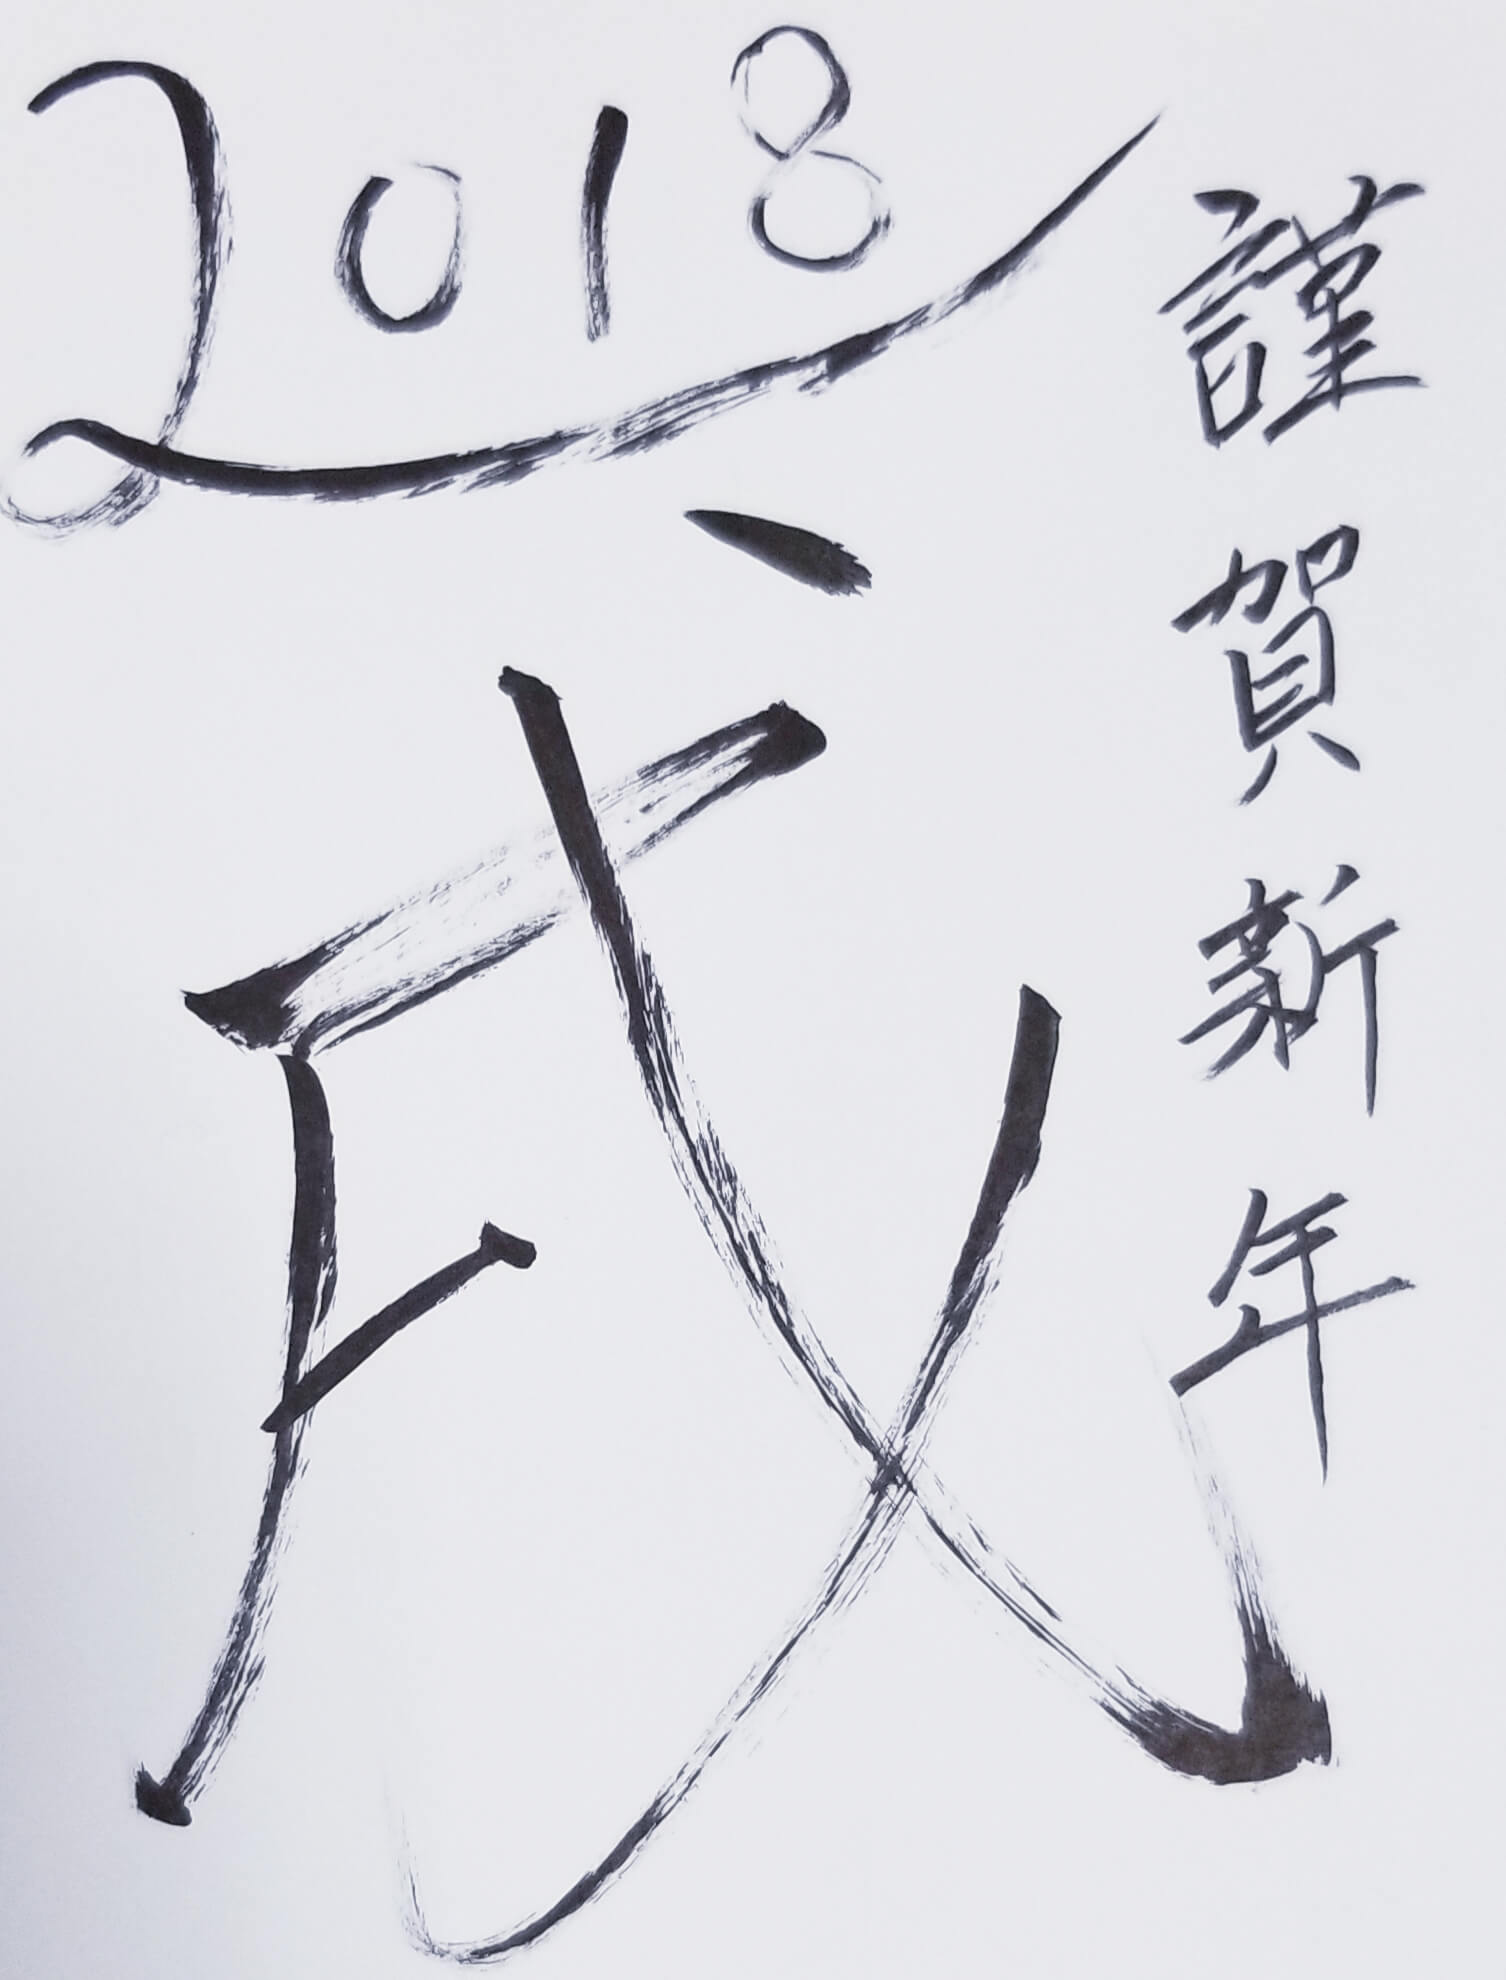 2018
謹賀新年
戌